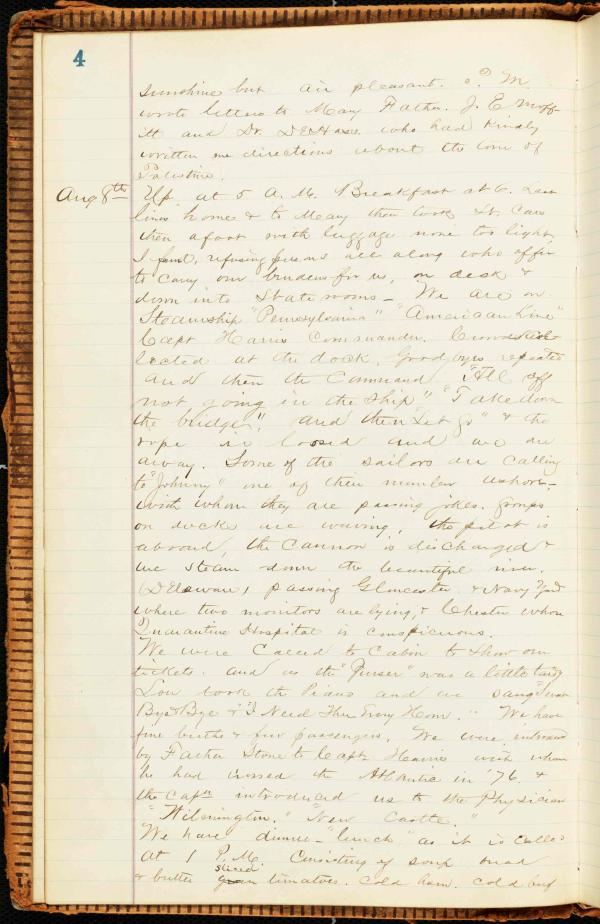 4
sunshine but air pleasant. P. M.
wrote letters to Mary Father. J. E. Moff-
itt and Dr. DeHass who had kindly
written me directions about the tour of
Palestine.
Aug 8th Up at 5 A. M. Breakfast at 6. Last
lines home & to Mary then took St. Cars
then afoot with luggage none too light,
I find, refusing persons all along who offer
to carry our burdens for us, on deck &
down into State rooms - We are on
Steamship "Pennsylvania" "American Line"
Capt Harris Commander. Crowds col-
lected at the dock. Good byes repeated
and then the Command "All off
not going in the ship" "Take down
the bridge", and then "Let go" & the
rope is loosed and we are
away. Some of the sailors are calling
to "Johnny" one of their number ashore -
with whom they are passing jokes. Groups
on docks are waving, the pilot is
aboard, the cannon is discharged &
we steam down the beautiful river.
(Delaware) passing Gloucester & Navy Yard
where two monitors are lying, & Chester where
Quarantine Hospital is conspicuous.
We were Called to Cabin to show our
tickets. and as the "Purser" was a little tardy
Lou took the Piano and we sang "Sweet
Bye & Bye & "I Need Thee Every Hour." We have
fine births & few passengers. We were introduced
by Father Stone to Capt Harris with whom
he had crossed the Atlantic in '76. &
the Capn introduced us to the Physician
"Wilmington." "New Castle."
We have dinner - "lunch" as it is called
at 1 P. M. Consisting of soup bread
& butter sliced tomatoes. cold ham. cold beef